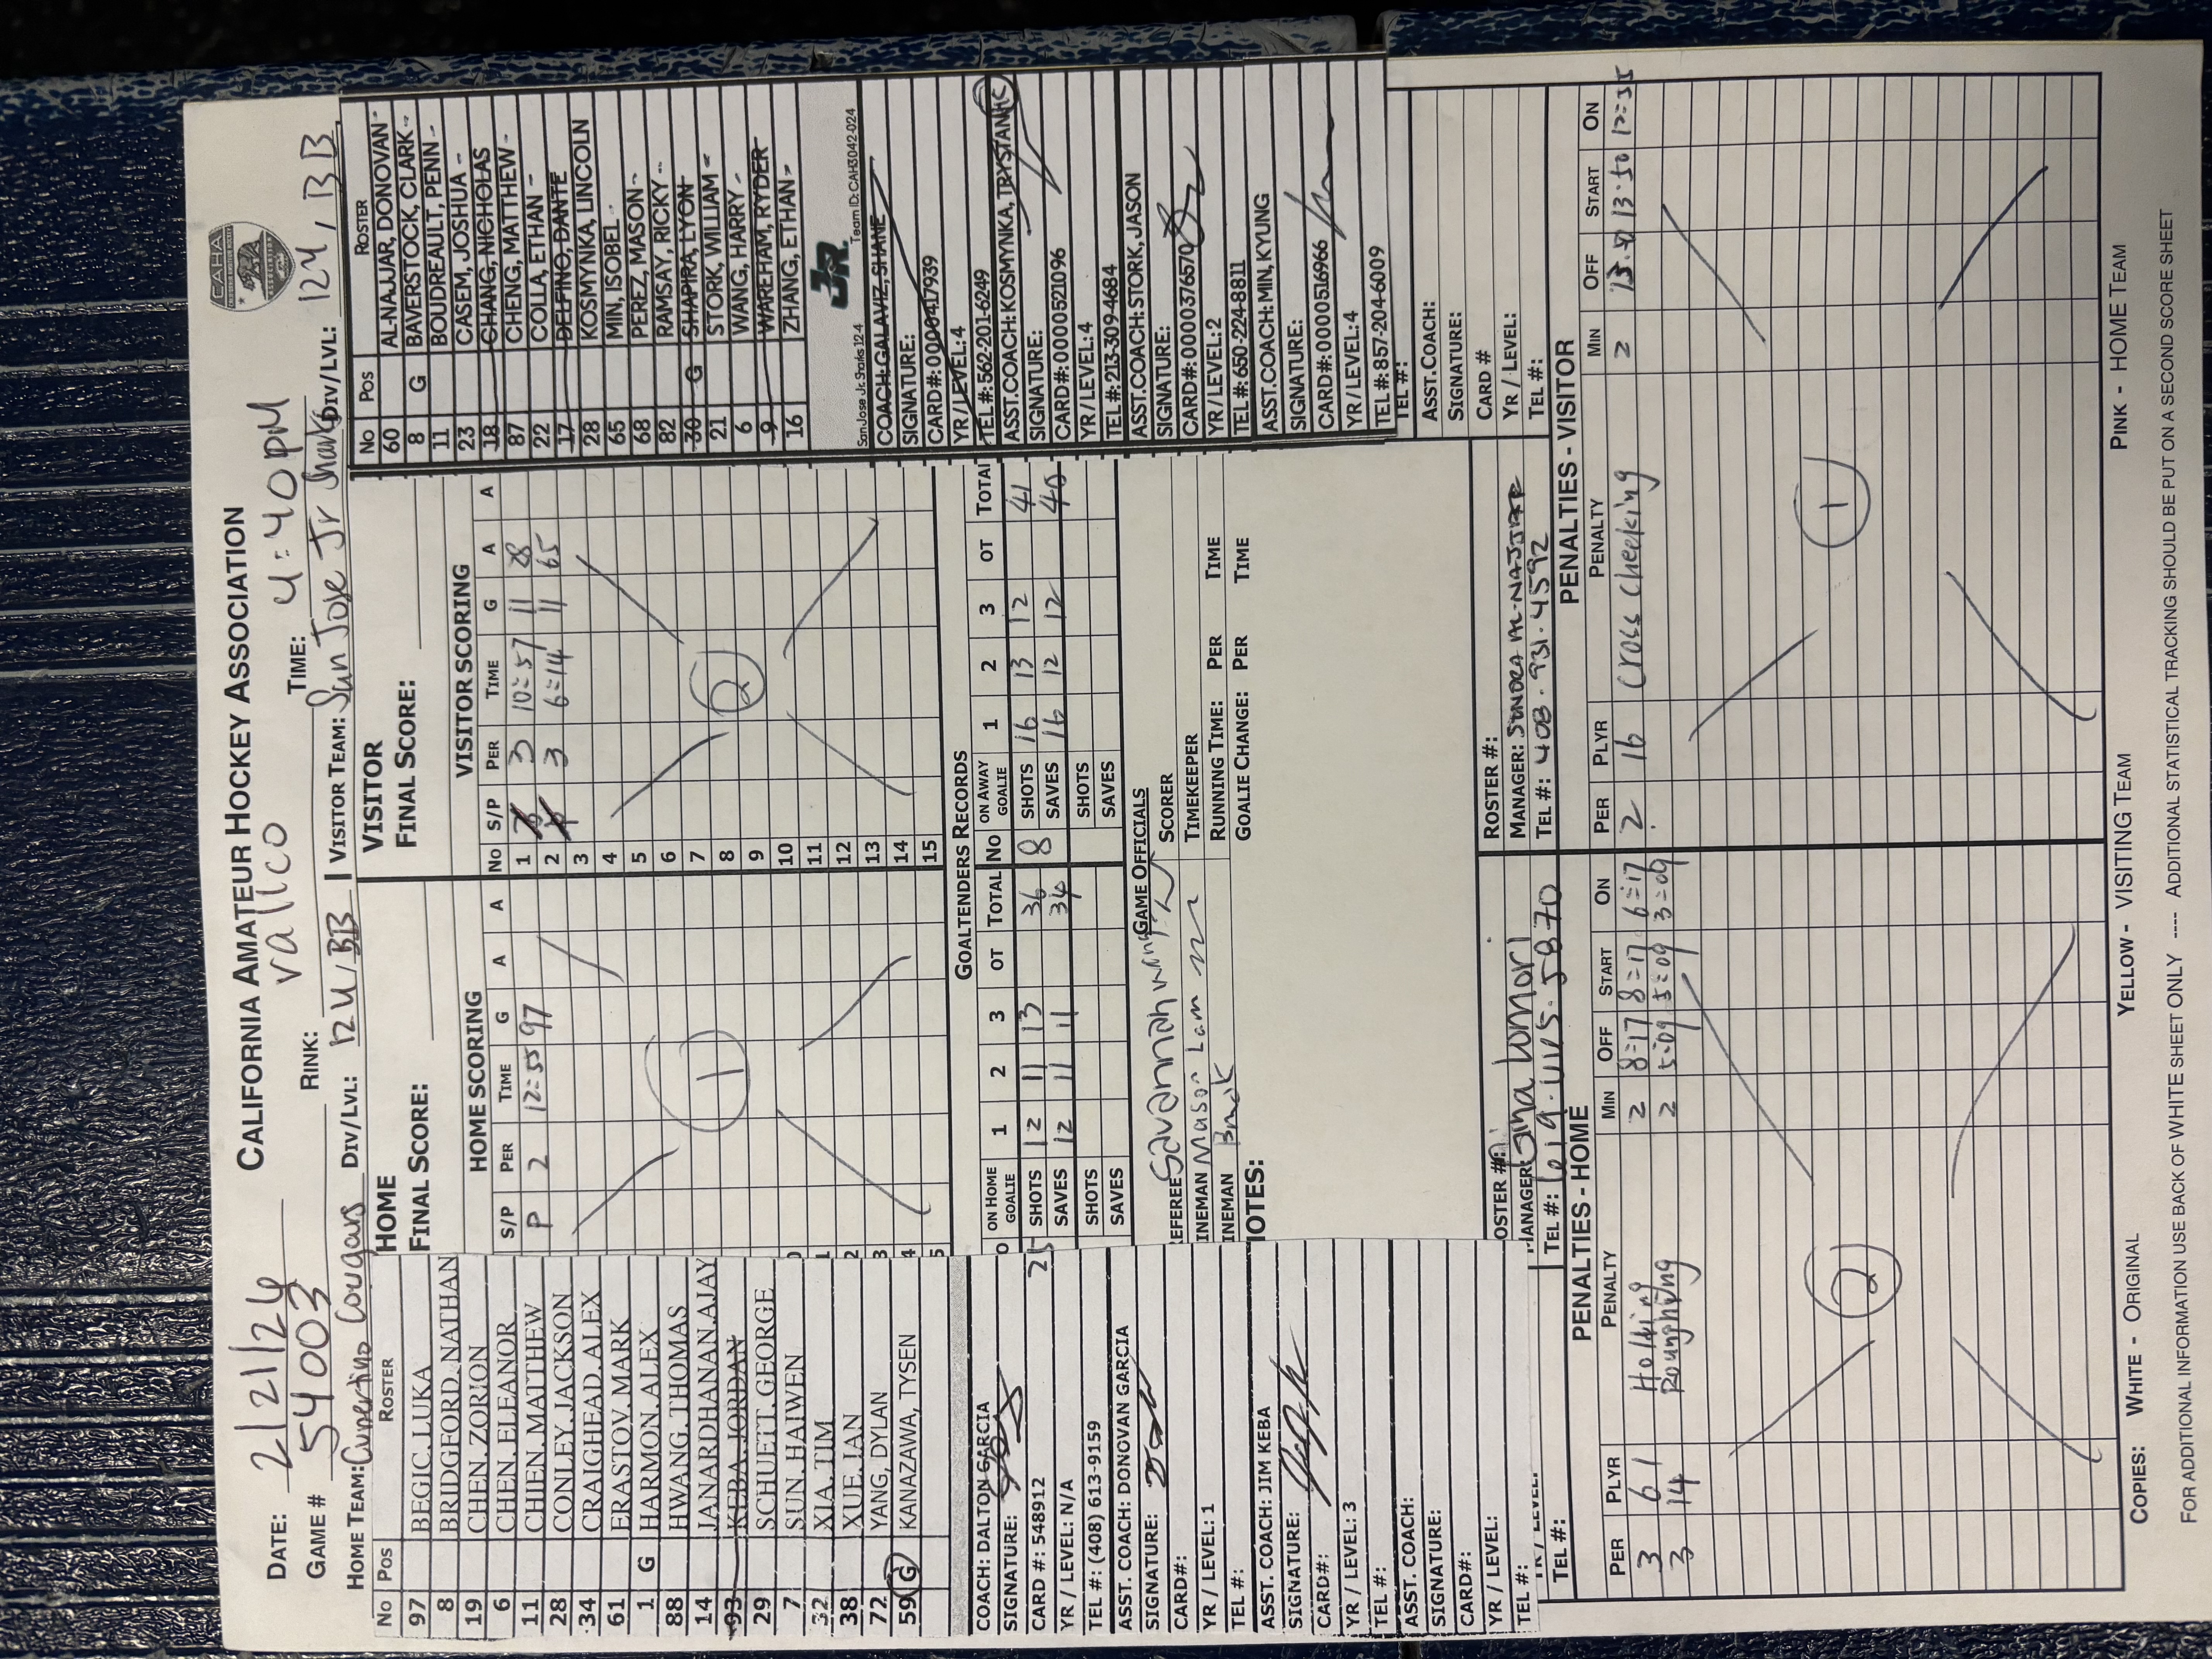 CALIFORNIA AMATEUR HOCKEY ASSOCIATION
CAHA
DATE: 2/21/26
GAME # 54003 RINK: Vallco TIME: 4:40pm
HOME TEAM: Cupertino Cougars DIV/LVL: 12U/BB VISITOR TEAM: San Jose Jr Sharks DIV/LVL: 12U, BB
HOME
FINAL SCORE:
VISITOR
FINAL SCORE:
No Pos ROSTER
97 BEGIC, LUKA
8 BRIDGEFORD, NATHAN
19 CHEN, ZORION
6 CHEN, ELEANOR
11 CHIEN, MATTHEW
28 CONLEY, JACKSON
34 CRAIGHEAD, ALEX
61 ERASTOV, MARK
1 G HARMON, ALEX
88 HWANG, THOMAS
14 JANARDHANAN, AJAY
93 KEBA, JORDAN
29 SCHUETT, GEORGE
7 SUN, HAIWEN
32 XIA, TIM
38 XUE, IAN
72 YANG, DYLAN
59 G KANAZAWA, TYSEN
HOME SCORING
S/P PER TIME G A A
P 2 12=55 97
1
VISITOR SCORING
No S/P PER TIME G A A
1 3 10=57 11 28
2 3 6=14 11 65
3
4
5
6
7
8
9
10
11
12
13
14
15
2
No Pos ROSTER
60 AL-NAJJAR, DONOVAN
8 G BAVERSTOCK, CLARK
11 BOUDREAULT, PENN
23 CASEM, JOSHUA
18 CHANG, NICHOLAS
87 CHENG, MATTHEW
22 COLLA, ETHAN
17 DELFINO, DANTE
28 KOSMYNKA, LINCOLN
65 MIN, ISOBEL
68 PEREZ, MASON
82 RAMSAY, RICKY
30 G SHAPIRA, LYON
21 STORK, WILLIAM
6 WANG, HARRY
9 WAREHAM, RYDER
16 ZHANG, ETHAN
JR.
San Jose Jr. Sharks 12-4 Team ID: CAH3042-024
COACH: DALTON GARCIA
SIGNATURE:
CARD #: 548912
YR / LEVEL: N/A
TEL #: (408) 613-9159
ASST. COACH: DONOVAN GARCIA
SIGNATURE:
CARD#:
YR / LEVEL: 1
TEL #:
ASST. COACH: JIM KEBA
SIGNATURE:
CARD#:
YR / LEVEL: 3
TEL #:
ASST. COACH:
SIGNATURE:
CARD#:
YR / LEVEL:
TEL #:
TEL #:
GOALTENDERS RECORDS
ON HOME GOALIE 1 2 3 OT TOTAL
SHOTS 12 11 13 36
SAVES 12 11 11 34
SHOTS
SAVES
No ON AWAY GOALIE 1 2 3 OT TOTAL
8 SHOTS 16 13 12 41
SAVES 16 12 12 40
SHOTS
SAVES
GAME OFFICIALS
EFEREE Savannah Wang
INEMAN Mason Lam
INEMAN
SCORER
TIMEKEEPER
RUNNING TIME: PER TIME
GOALIE CHANGE: PER TIME
NOTES:
COACH: GALAVIZ, SHANE
SIGNATURE:
CARD#: 0000417939
YR / LEVEL: 4
TEL #: 562-201-6249
ASST. COACH: KOSMYNKA, TRYSTAN HC
SIGNATURE:
CARD #: 0000521096
YR / LEVEL: 4
TEL #: 213-309-4684
ASST. COACH: STORK, JASON
SIGNATURE:
CARD #: 0000376570
YR / LEVEL: 2
TEL #: 650-224-8811
ASST. COACH: MIN, KYUNG
SIGNATURE:
CARD#: 0000516966
YR / LEVEL: 4
TEL #: 857-204-6009
TEL #:
ASST. COACH:
SIGNATURE:
CARD #
YR / LEVEL:
TEL #:
OSTER #:
MANAGER: Gina Lomori
TEL #:
ROSTER #:
MANAGER: SUNDRA AL-NAJJAR
TEL #: 408.931.4592
PENALTIES - HOME
PER PLYR PENALTY MIN OFF START ON
3 61 Holding 2 8=17 8=17 6=17
3 14 Roughing 2 5=09 5=09 3=09
2
PENALTIES - VISITOR
PER PLYR PENALTY MIN OFF START ON
2 16 Cross checking 2 13:50
1
COPIES: WHITE - ORIGINAL YELLOW - VISITING TEAM PINK - HOME TEAM
FOR ADDITIONAL INFORMATION USE BACK OF WHITE SHEET ONLY ---- ADDITIONAL STATISTICAL TRACKING SHOULD BE PUT ON A SECOND SCORE SHEET